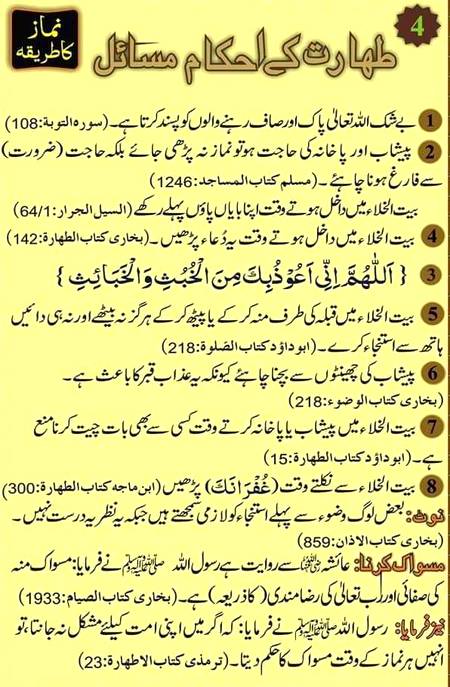 4
طہارت کے احکام مسائل
نماز
کا طریقہ
1 بے شک اللہ تعالیٰ پاک اور صاف رہنے والوں کو پسند کرتا ہے۔ (سورہ التوبۃ:108)
2 پیشاب اور پاخانہ کی حاجت ہو تو نماز نہ پڑھی جائے بلکہ حاجت (ضرورت)
سے فارغ ہونا چاہئے۔ (مسلم کتاب المساجد:1246)
بیت الخلاء میں داخل ہوتے وقت اپنا بایاں پاؤں پہلے رکھے (السیل الجرار:64/1)
4 بیت الخلاء میں داخل ہوتے وقت یہ دُعاء پڑھیں۔ (بخاری کتاب الطھارۃ:142)
3 { اَللّٰهُمَّ اِنِّی اَعُوْذُبِكَ مِنَ الْخُبُثِ وَالْخَبَائِثِ }
5 بیت الخلاء میں قبلہ کی طرف منہ کر کے یا پیٹھ کر کے ہرگز نہ بیٹھے اور نہ ہی دائیں
ہاتھ سے استنجاء کرے۔ (ابوداؤد کتاب الصلوۃ:218)
6 پیشاب کی چھینٹوں سے بچنا چاہئے کیونکہ یہ عذاب قبر کا باعث ہے۔
(بخاری کتاب الوضوء:218)
7 بیت الخلاء میں پیشاب یا پاخانہ کرتے وقت کسی سے بھی بات چیت کرنا منع
ہے۔ (ابو داؤد کتاب الطھارۃ:15)
8 بیت الخلاء سے نکلتے وقت (غُفْرَانَكَ) پڑھیں (ابن ماجہ کتاب الطھارۃ:300)
نوٹ: بعض لوگ وضوء سے پہلے استنجاء کو لازمی سمجھتے ہیں جبکہ یہ نظریہ درست نہیں۔
(بخاری کتاب الاذان:859)
مسواک کرنا: عائشہ رضی اللہ عنہا سے روایت ہے رسول اللہ ﷺ نے فرمایا: مسواک منہ
کی صفائی اور رب تعالیٰ کی رضامندی (کا ذریعہ) ہے۔ (بخاری کتاب الصیام:1933)
نیز فرمایا: رسول اللہ ﷺ نے فرمایا: کہ اگر میں اپنی امت کیلئے مشکل نہ جانتا، تو
انہیں ہر نماز کے وقت مسواک کا حکم دیتا۔ (ترمذی کتاب الاطھارۃ:23)